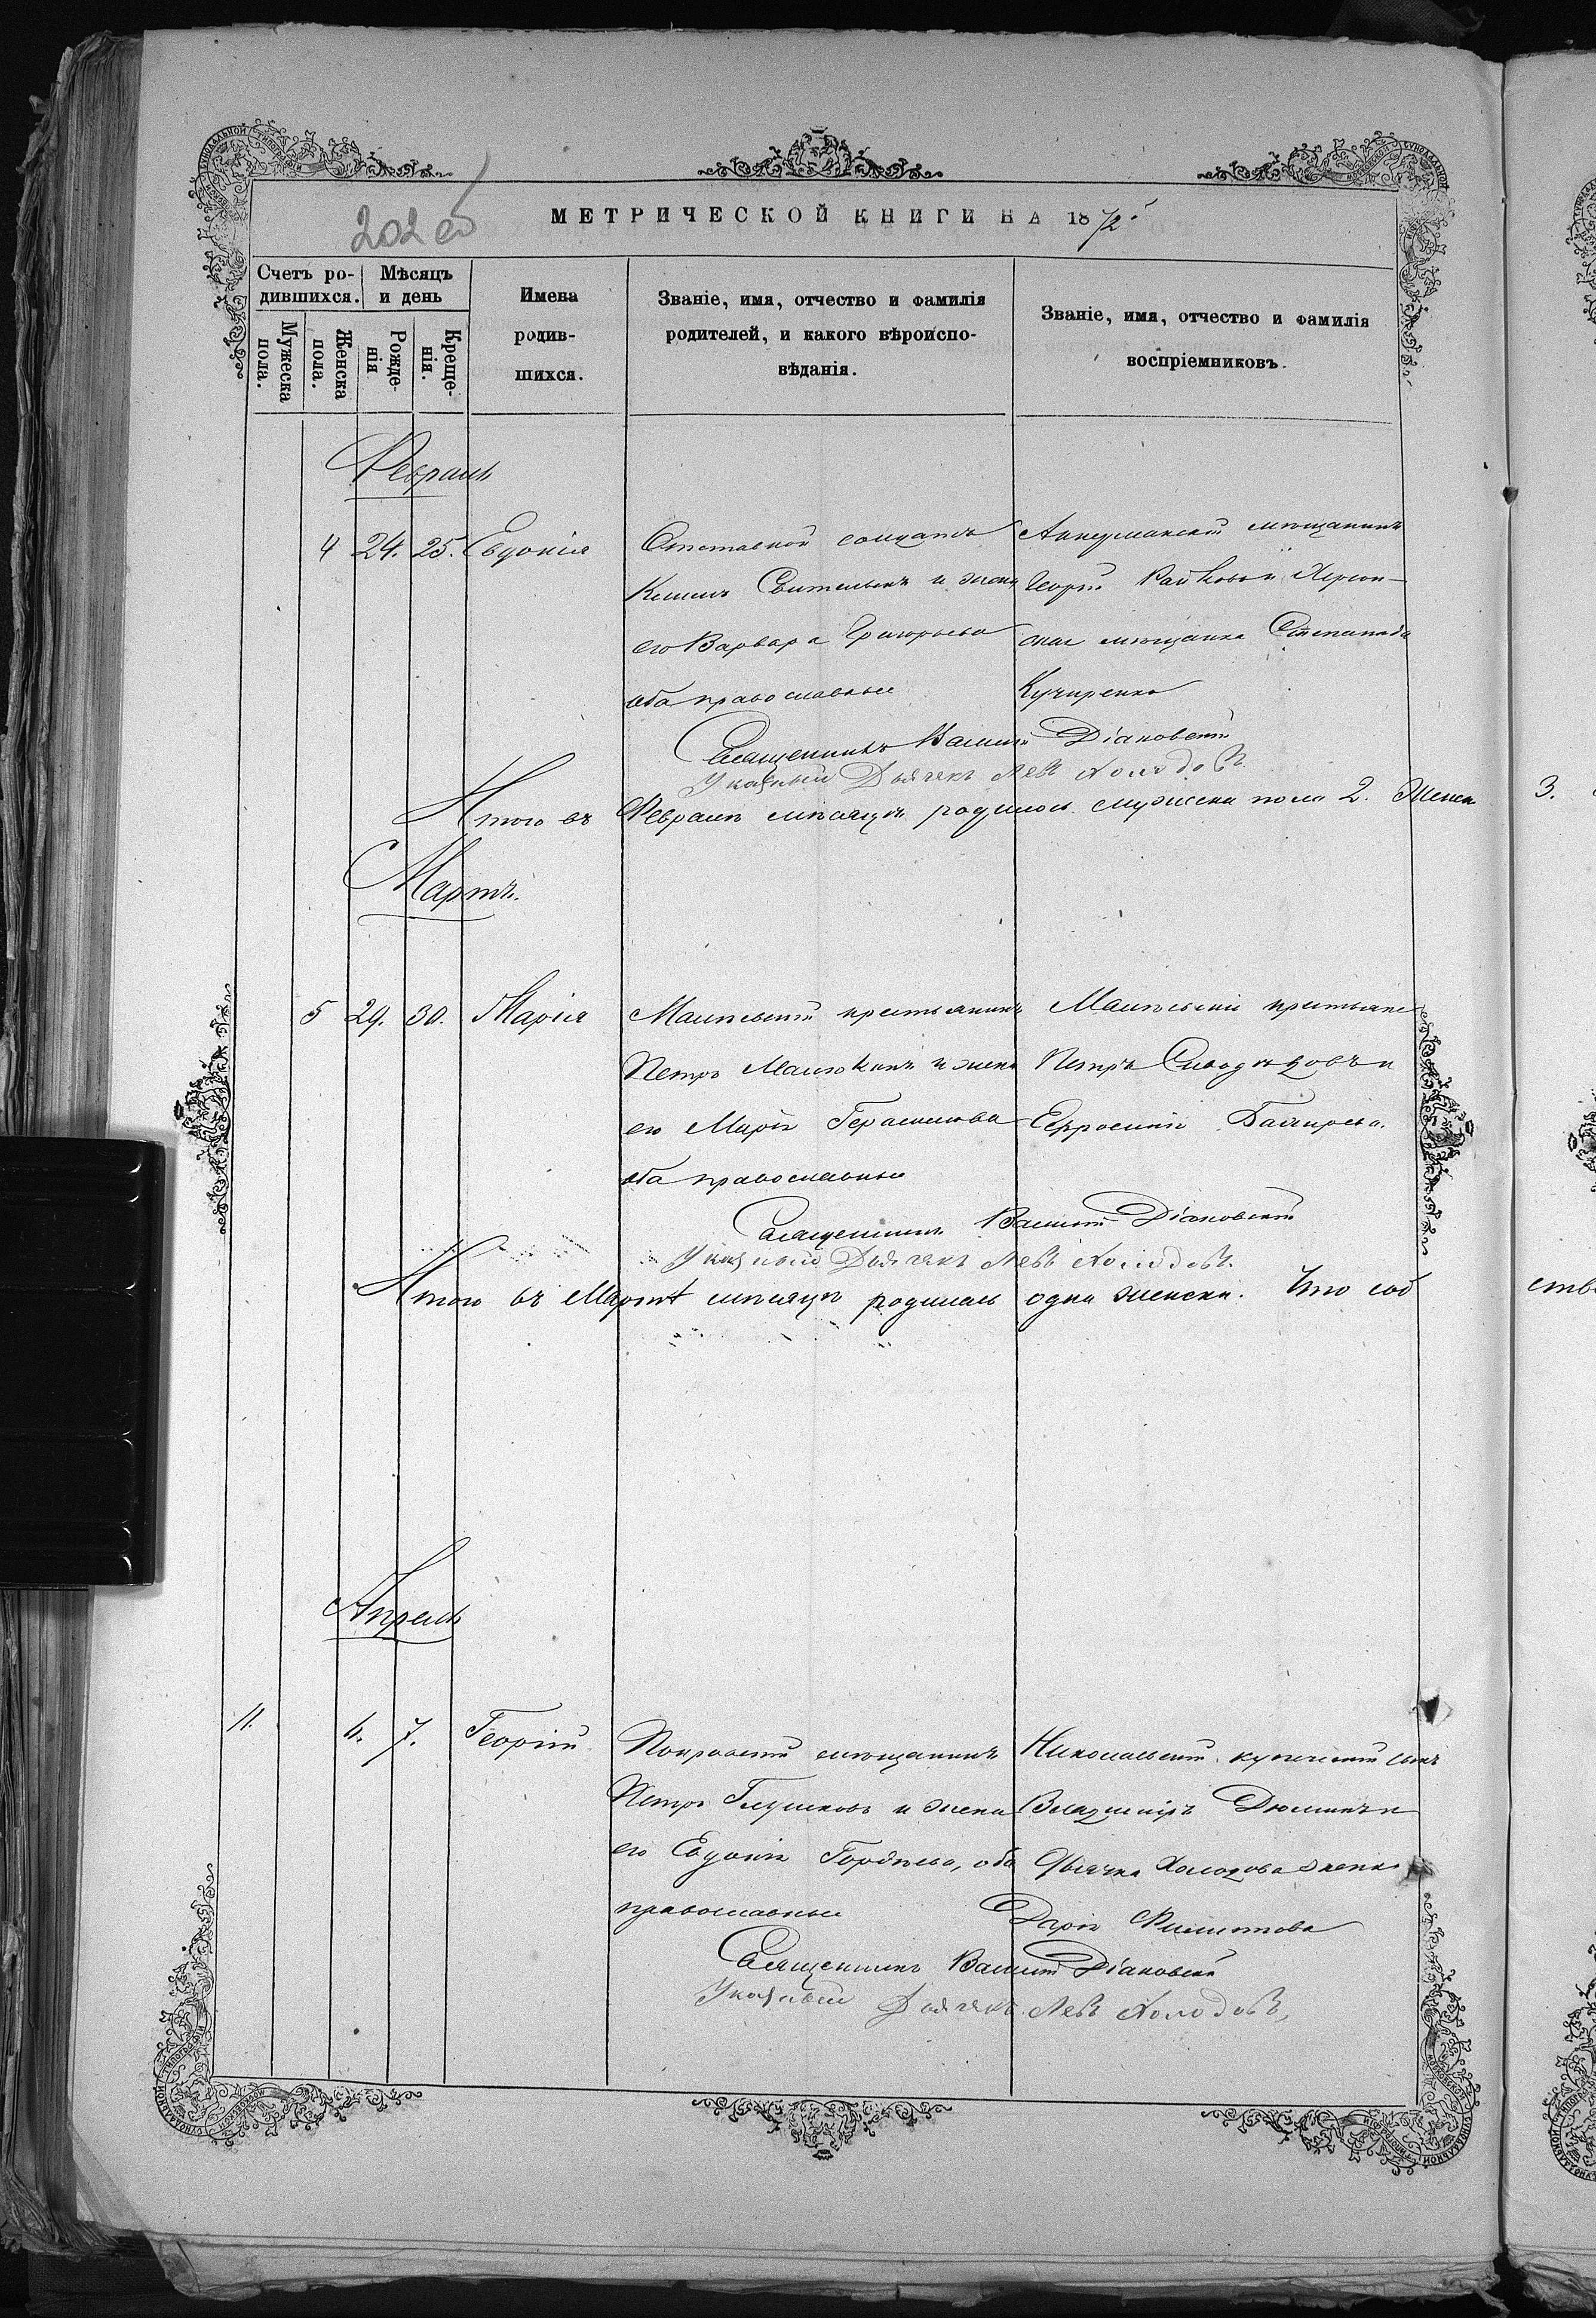 202 об
МЕТРИЧЕСКОЙ КНИГИ НА 1872
Счетъ родившихся.
Мѣсяцъ и день
Имена родившихся.
Званіе, имя, отчество и фамилія родителей, и какого вѣроисповѣданія.
Званіе, имя, отчество и фамилія воспріемниковъ.
Мужеска пола.
Женска пола.
Рожденія
Крещенія.
Февраль
4 24. 25. Евдокія
Отставной солдатъ
и жена
его Варвара Григорьева
оба православные
Аккерманскій мѣщанинъ
Георгій Райковъ и Херсон-
ская мѣщанка Степанида
Кучиренко
Священникъ Василій Діаковскій
Указный Дьячекъ Левъ Холодовъ
Итого въ Февралѣ мѣсяцѣ родилось мужеска пола 2. Женск 3.
Мартъ.
5 29. 30. Марія
крестьянинъ
Петръ Малюкинъ и жена
его Марія Герасимова
оба православные
крестьяне
Петръ
Ефросинія
Священникъ Василій Діаковскій
Указный Дьячекъ Левъ Холодовъ.
Итого въ Мартѣ мѣсяцѣ родилась одна женска. Что
Апрель
11. 6. 7. Георгій
Покровскій мѣщанинъ
Петръ Глушковъ и жена
его Евдокія Гордѣева, оба
православные
Николаевскій купеческій сынъ
Владиміръ Дюминъ и
Дьячка Холодова жена
Дарія Филиппова
Священникъ Василій Діаковскій
Указный Дьячекъ Левъ Холодовъ,